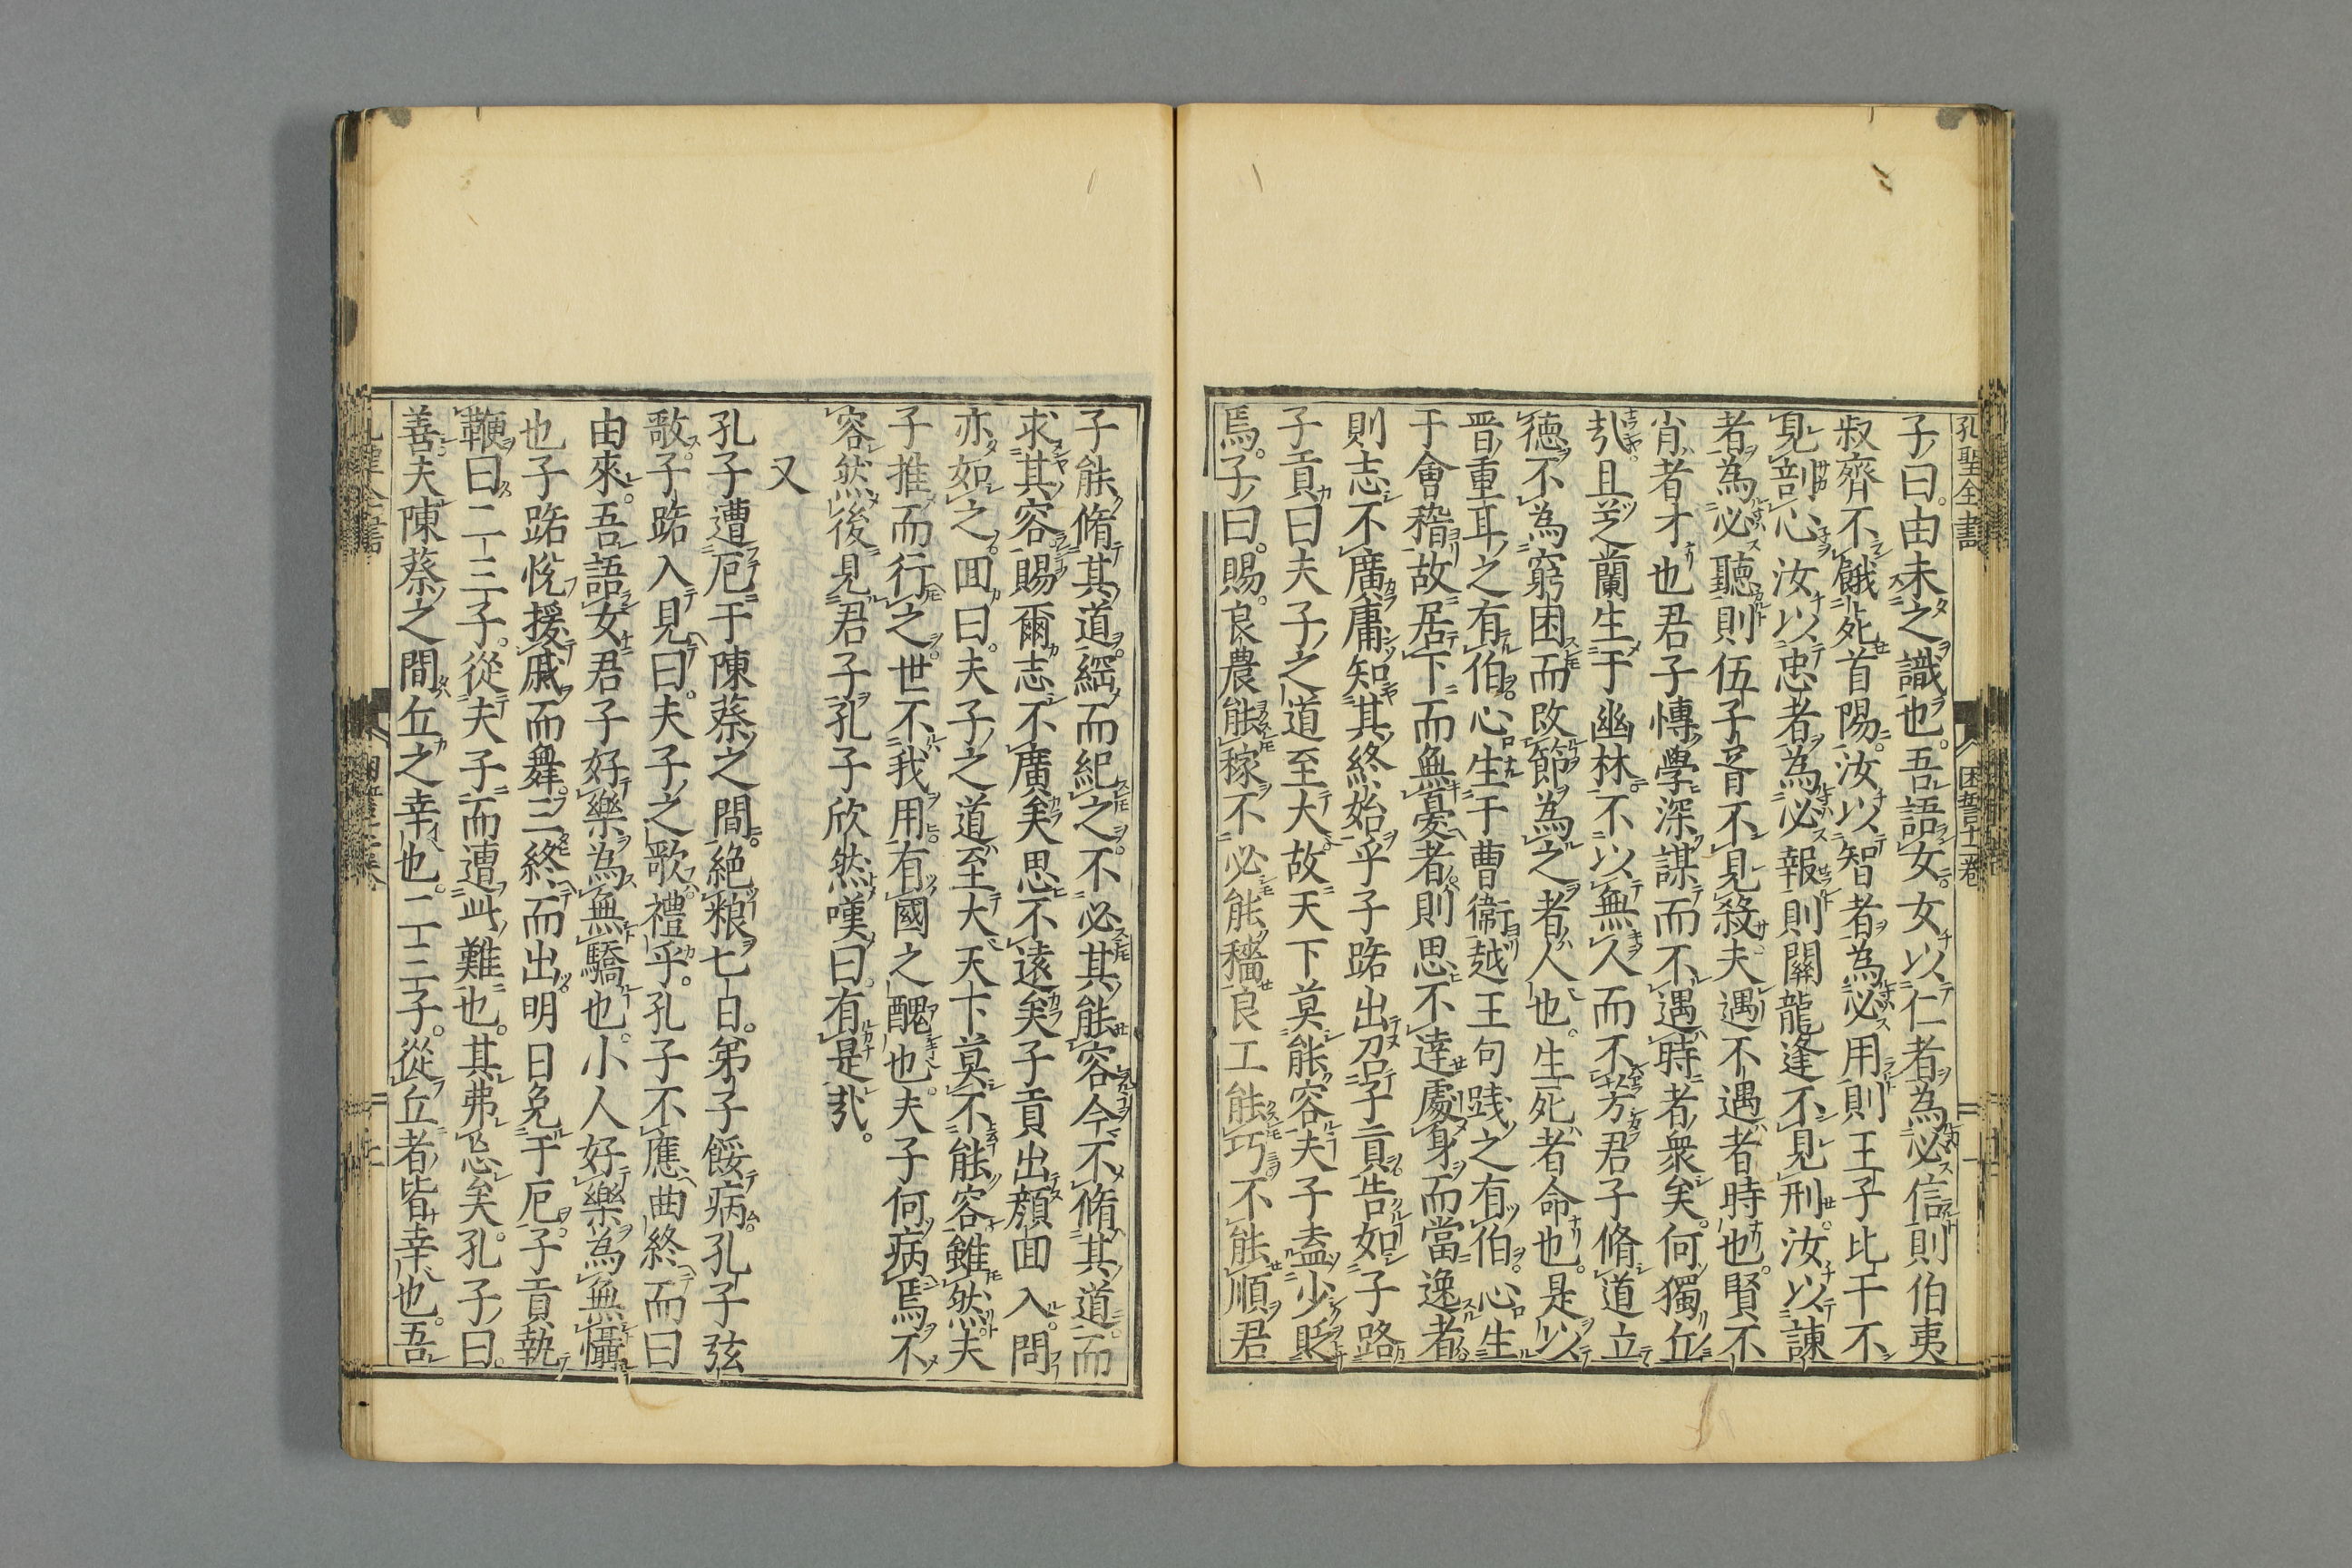 孔聖全書 困誓十二卷 二 十一
子曰。由未之識也。吾語女。女以仁者為必信則伯夷
叔齊不餓死首陽。汝以智者為必用則王子比干不
見剖心汝以忠者為必報則關龍逢不見刑。汝以諫
者為必聽則伍子胥不見殺夫遇不遇者時也。賢不
肖者才也君子博學深謀而不遇時者衆矣。何獨丘
㢤。且芝蘭生于幽林不以無人而不芳君子脩道立
德不為窮困而改節為之者人也。生死者命也。是以
晉重耳之有伯心生于曹衞越王句踐之有伯。心生
于會稽故居下而無憂者則思不達處身而當逸者
則志不廣庸知其終始乎子路出召子貢告如子路
子貢曰夫子之道至大故天下莫能容夫子盍少貶
焉。子曰。賜。良農能稼不必能穡良工能巧。不能順君
子能脩其道綱而紀之。不必其能容今不脩其道而
求其容賜爾志不廣矣思不遠矣子貢出顏囬入問
亦如之囬曰。夫子之道至大天下莫不能容雖然夫
子推而行之世不我用。有國之醜也。夫子何病焉不
容然後見君子孔子欣然嘆曰。有是㢤。
又
孔子遭厄于陳蔡之間。絶粮七日。弟子餒病。孔子弦
歌子路入見曰。夫子之歌禮乎。孔子不應曲終而曰
由來。吾語女君子好樂為無驕也。小人好樂為無懾
也子路悅援戚而舞。三終而出明日免于厄。子貢執
鞭曰二三子。從夫子而遭此難也。其弗忘矣。孔子曰。
善夫陳蔡之間丘之幸也。二三子。從丘者皆幸也。吾